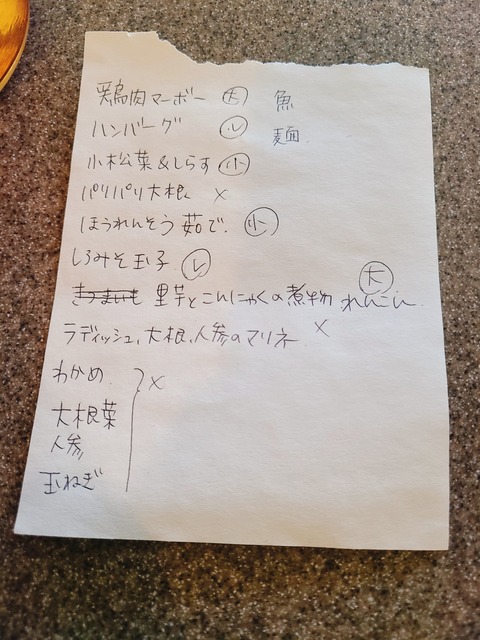 鶏肉マーボー 大 魚
ハンバーグ レ 麺
小松菜&しらす 小
パリパリ大根 ×
ほうれんそう茹で. 小
しろみそ玉子 レ
さつまいも 里芋とこんにゃくの煮物 れんこん 大
ラディッシュ、大根、人参のマリネ ×
わかめ ×
大根葉
人参
玉ねぎ